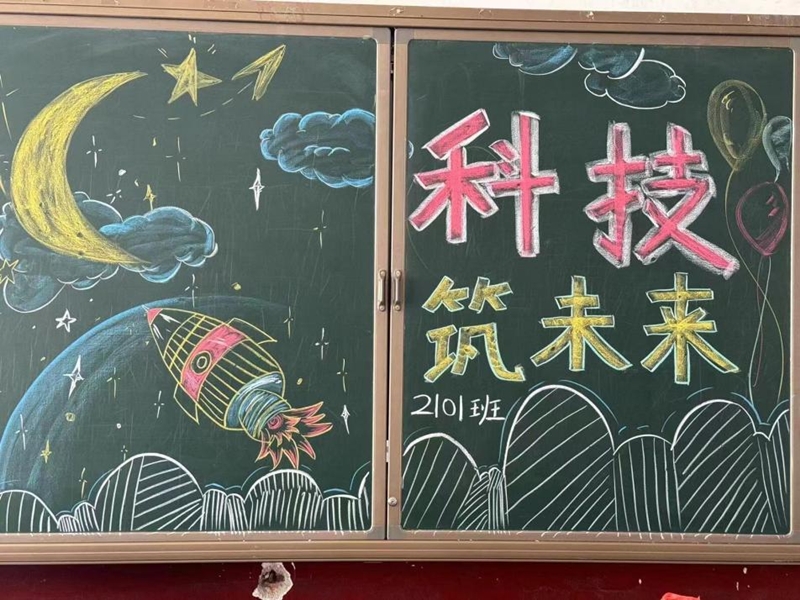 科技
筑未来
2101班